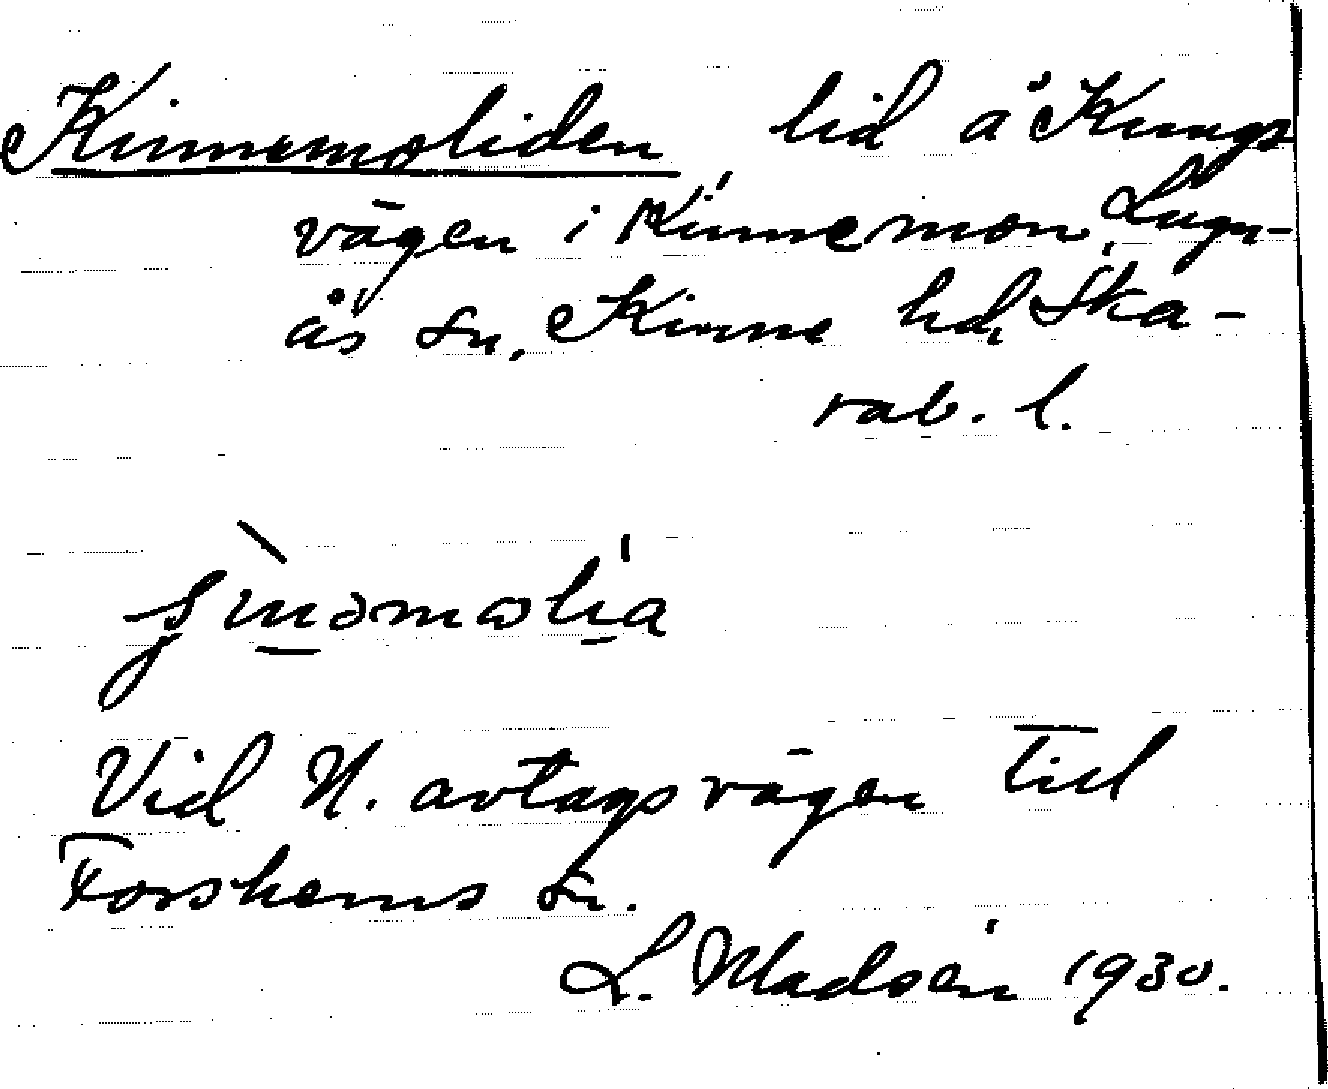 Kinnemoliden lid å Kungs
vägen i Kinnemon, Lugn-
ås sn, Kinne hd, Ska-
rab. l.
Vid N. avtagsvägen till
Forshems sn.
L. Madsén 1930.